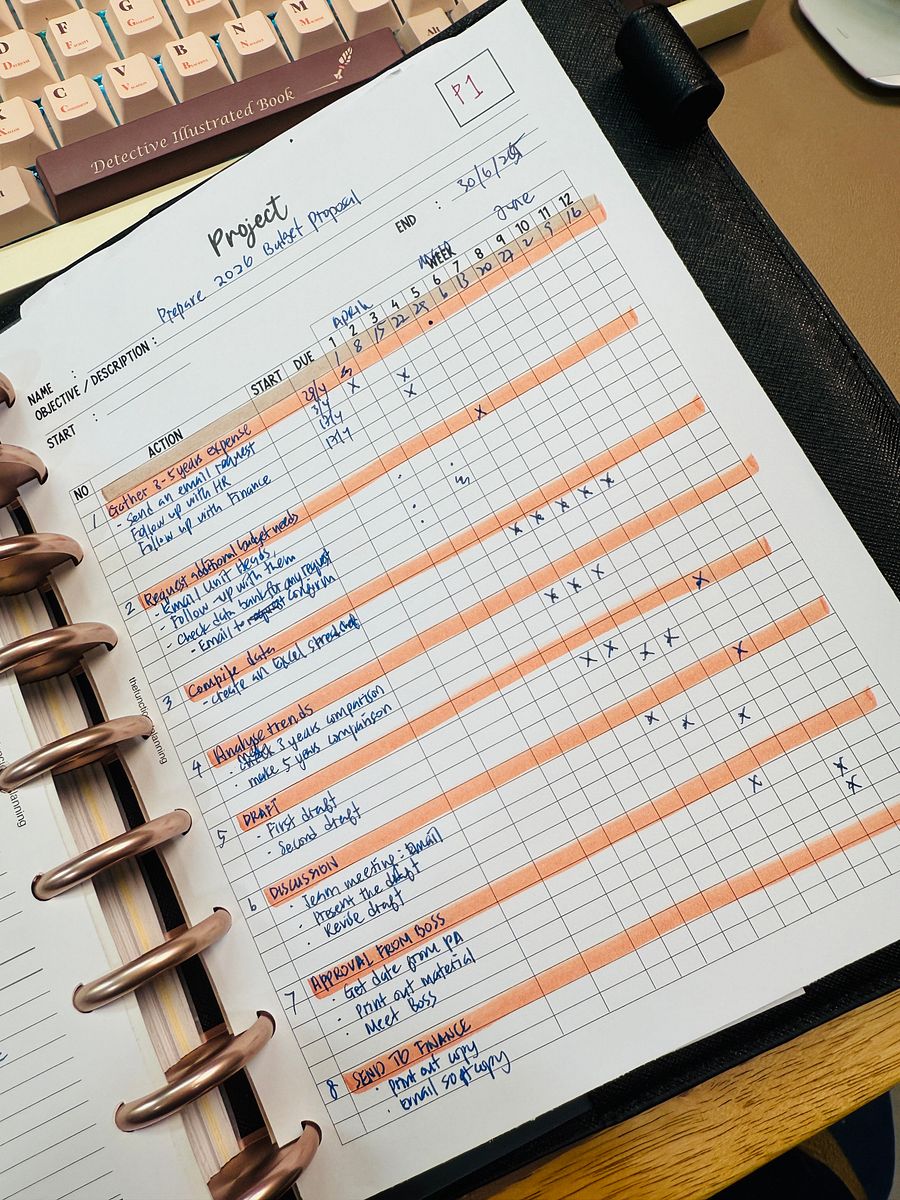 D
F
G
M
V
B
N
M
C
Alt
Detective Illustrated Book
P1
Project
Prepare 2026 Budget Proposal
END : 30/6/205
NAME :
OBJECTIVE / DESCRIPTION :
START :
WEEK
APRIL June
NO ACTION START DUE 1 2 3 4 5 6 7 8 9 10 11 12
1 8 15 22 29 6 13 20 27 2 9 16
1 Gather 3-5 years expense 29/4
- Send an email request 3/4
- Follow up with HR 17/4
Follow up with Finance 17/4
2 Request additional budget needs
- Email Unit Heads
- Follow-up with them
- Check data bank for any request
- Email to confirm
3 Compile data
- create an Excel
4 Analyse trends
- 3 years comparison
- make 5 years comparison
5 DRAFT
- First draft
- Second draft
6 DISCUSSION
- Team meeting: Email
- Present the draft
- Revise draft
7 APPROVAL FROM BOSS
- Get date from PA
- Print out material
- Meet Boss
8 SEND TO FINANCE
- print out copy
- Email soft copy